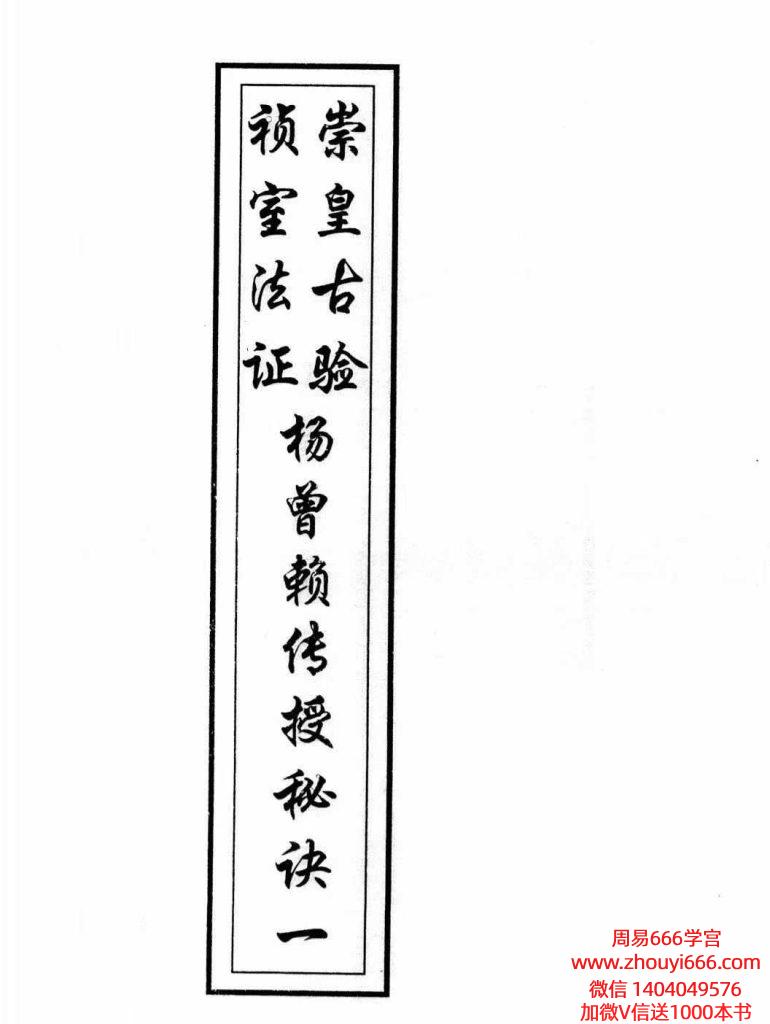 崇皇古验
祯室法证
杨曾赖传授秘诀一
周易666学宫
www.zhouyi666.com
微信 1404049576
加微V信送1000本书